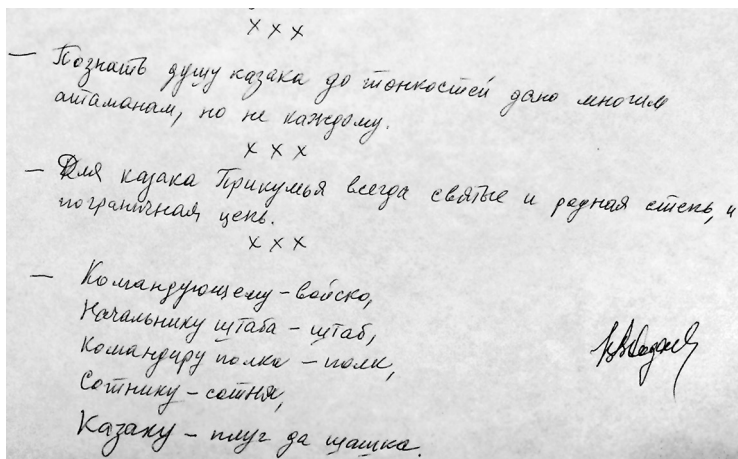 × × ×
— Познать душу казака до тонкостей дано многим
атаманам, но не каждому.
× × ×
— Для казака Прикумья всегда святые и родная степь, и
пограничная цепь.
× × ×
— Командующему – войско,
Начальнику штаба – штаб,
Командиру полка – полк,
Сотнику – сотня,
Казаку – плуг да шашка.